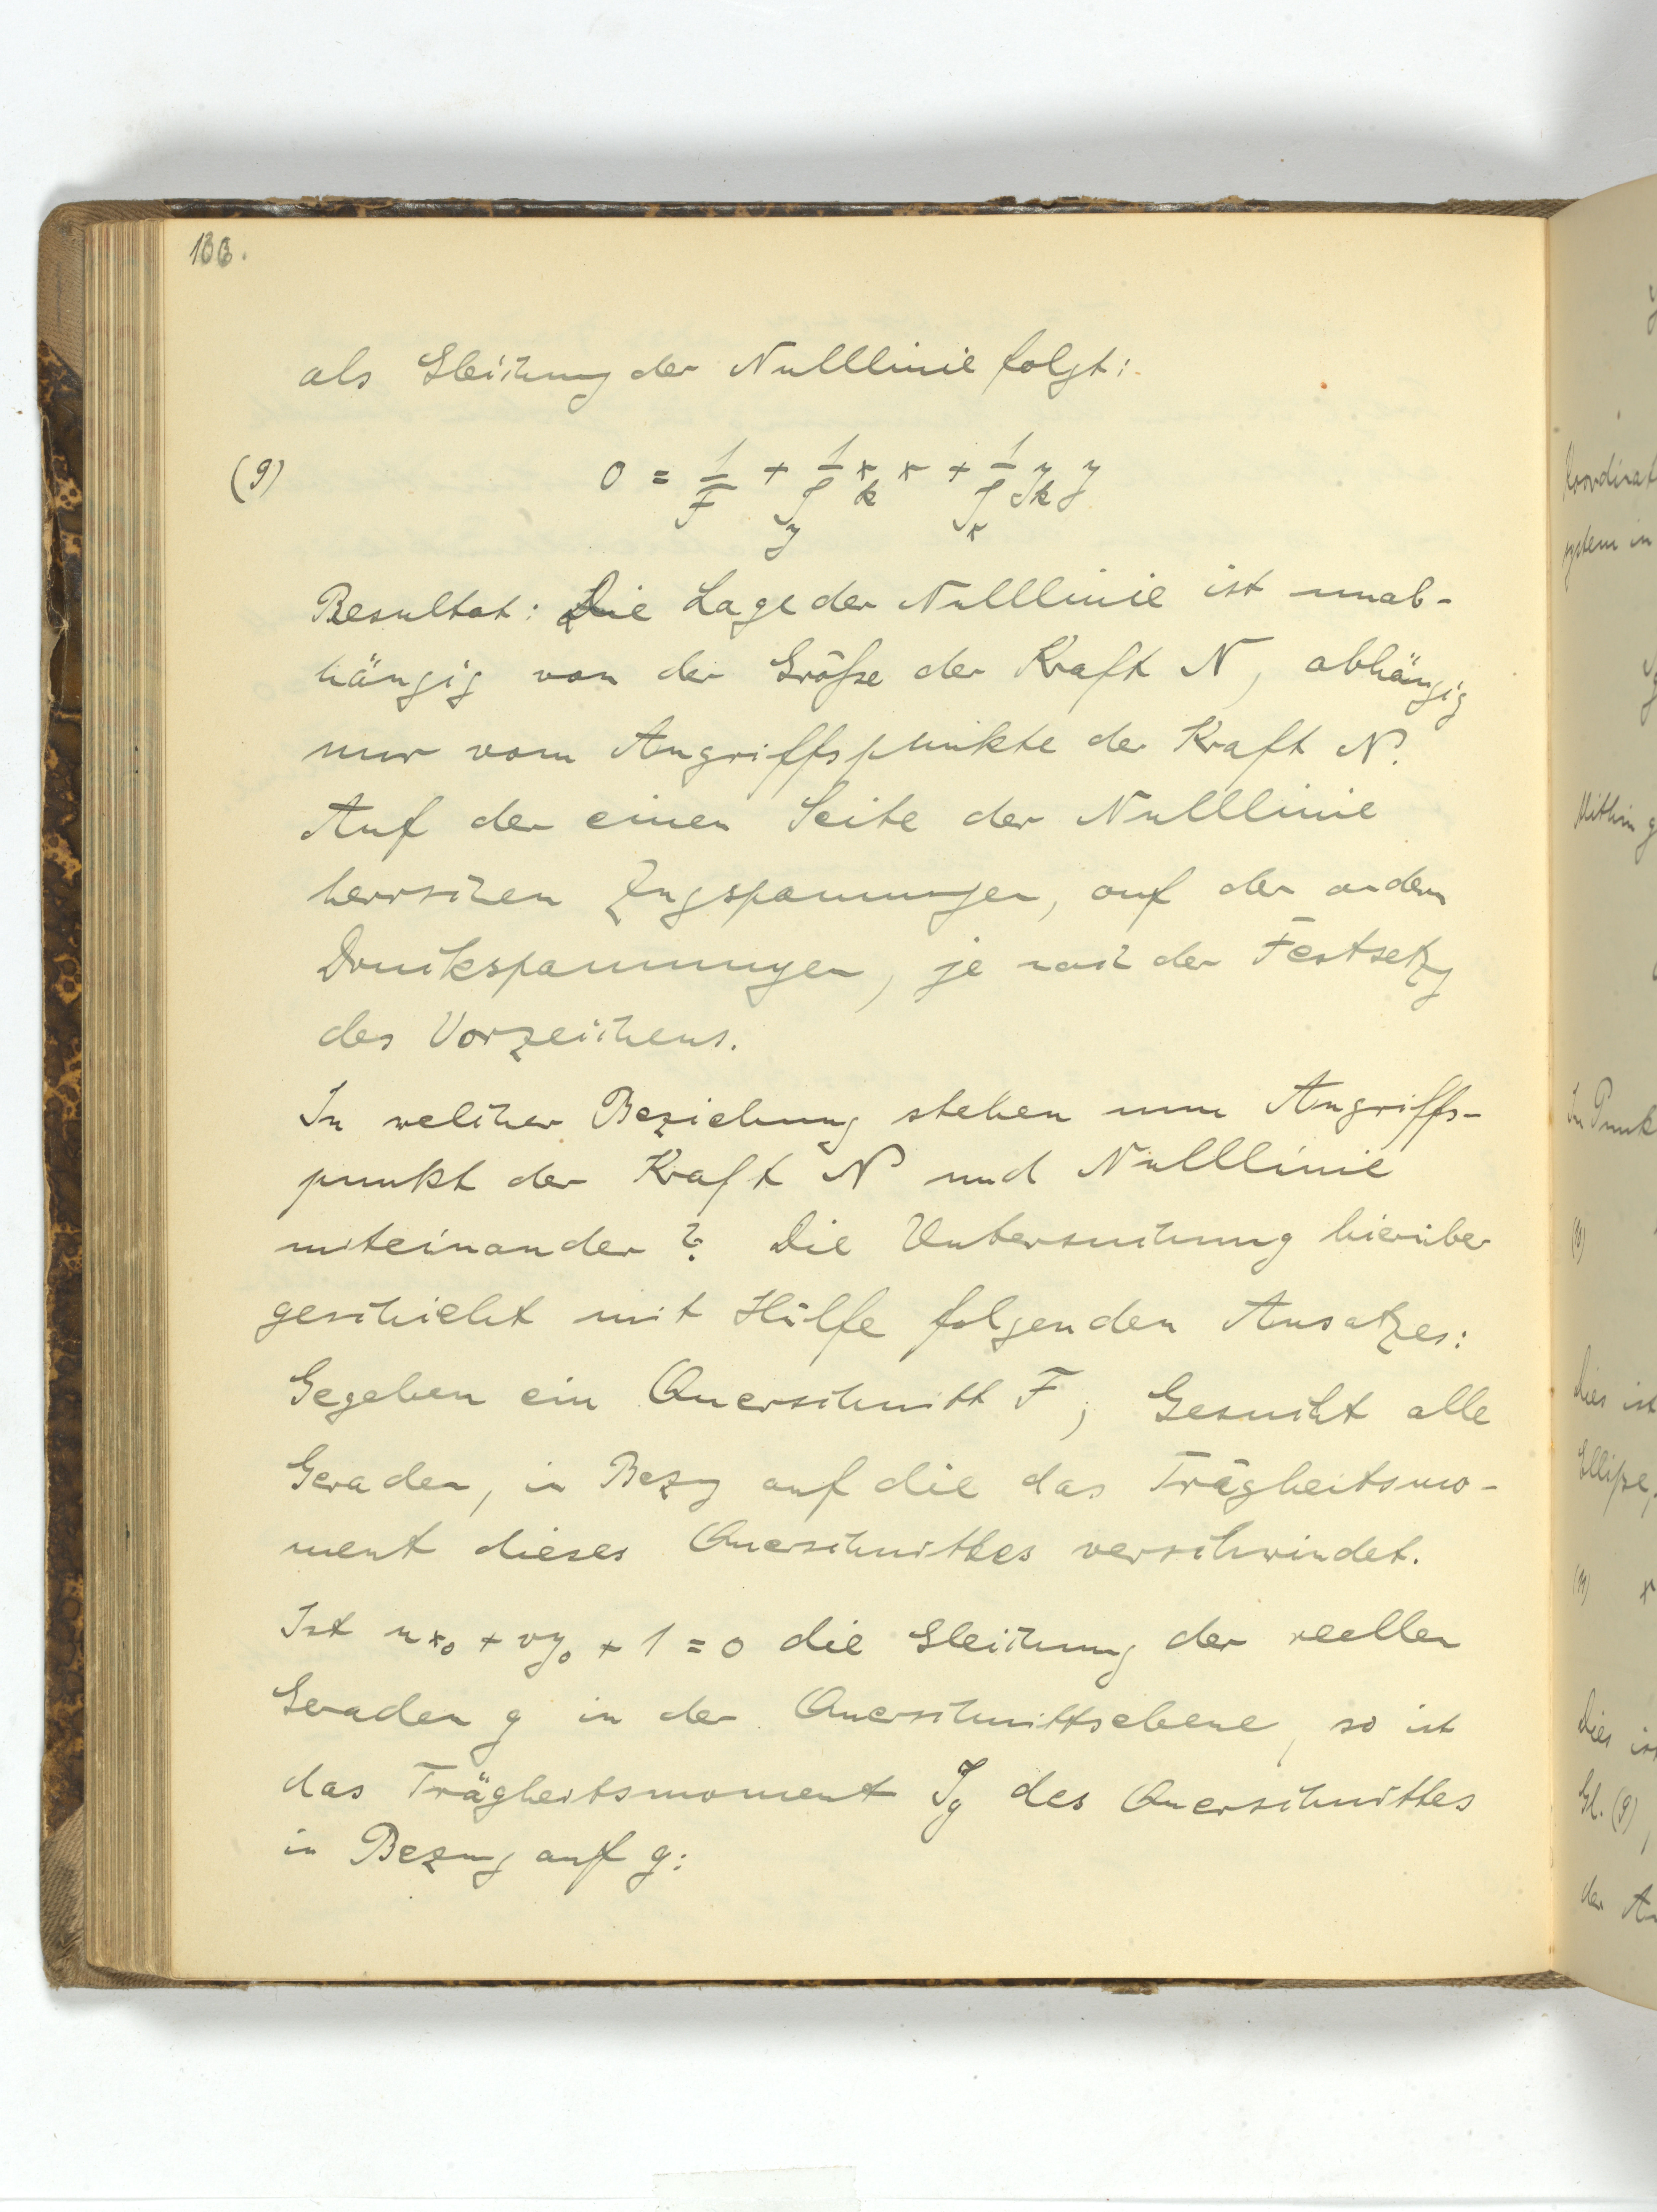 als Gleichung der Nulllinie folgt:
(9) 0 = 1/F + 1/J_y x_k x + 1/J_x y_k y
Resultat: Die Lage der Nulllinie ist unab-
hängig von der Größe der Kraft N, abhängig
nur vom Angriffspunkte der Kraft N.
Auf der einen Seite der Nulllinie
herrschen Zugspannungen, auf der andern
Druckspannungen, je nach der Festsetzg
des Vorzeichens.
In welcher Beziehung stehen nun Angriffs-
punkt der Kraft N und Nulllinie
miteinander? Die Untersuchung hierüber
geschieht mit Hilfe folgenden Ansatzes:
Gegeben ein Querschnitt F; Gesucht alle
Geraden, in Bezg auf die das Trägheitsmo-
ment dieses Querschnittes verschwindet.
Ist ux_0 + vy_0 + 1 = 0 die Gleichung der reellen
Geraden g in der Querschnittsebene, so ist
das Trägheitsmoment J_g des Querschnittes
in Bezug auf g:
Koordinat
system in
Mithin g
Im Punk
dies ist
Ellipse,
Dies ist
Gl. (9),
der An